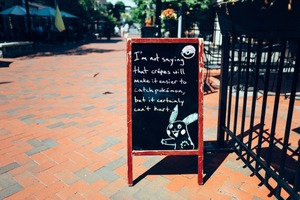 I'm not saying
that crêpes will
make it easier to
catch pokémon,
but it certainly
can't hurt.